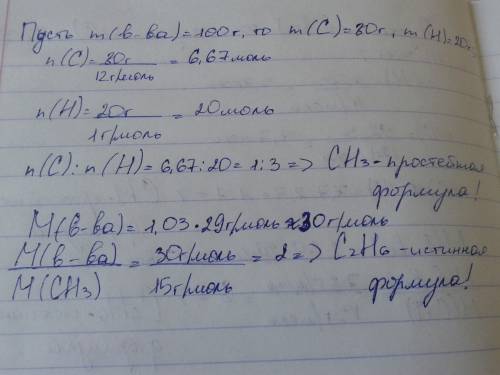 Пусть m(в-ва)=100г, то m(C)=80г, m(H)=20г
n(C)=80г/12г/моль = 6,67моль
n(H)=20г/1г/моль = 20моль
n(C):n(H)=6,67:20=1:3=> CH₃-простейшая формула!
M(в-ва)=1,03·29г/моль≈30г/моль
M(в-ва)/M(CH₃) = 30г/моль/15г/моль = 2 => C₂H₆-истинная формула!